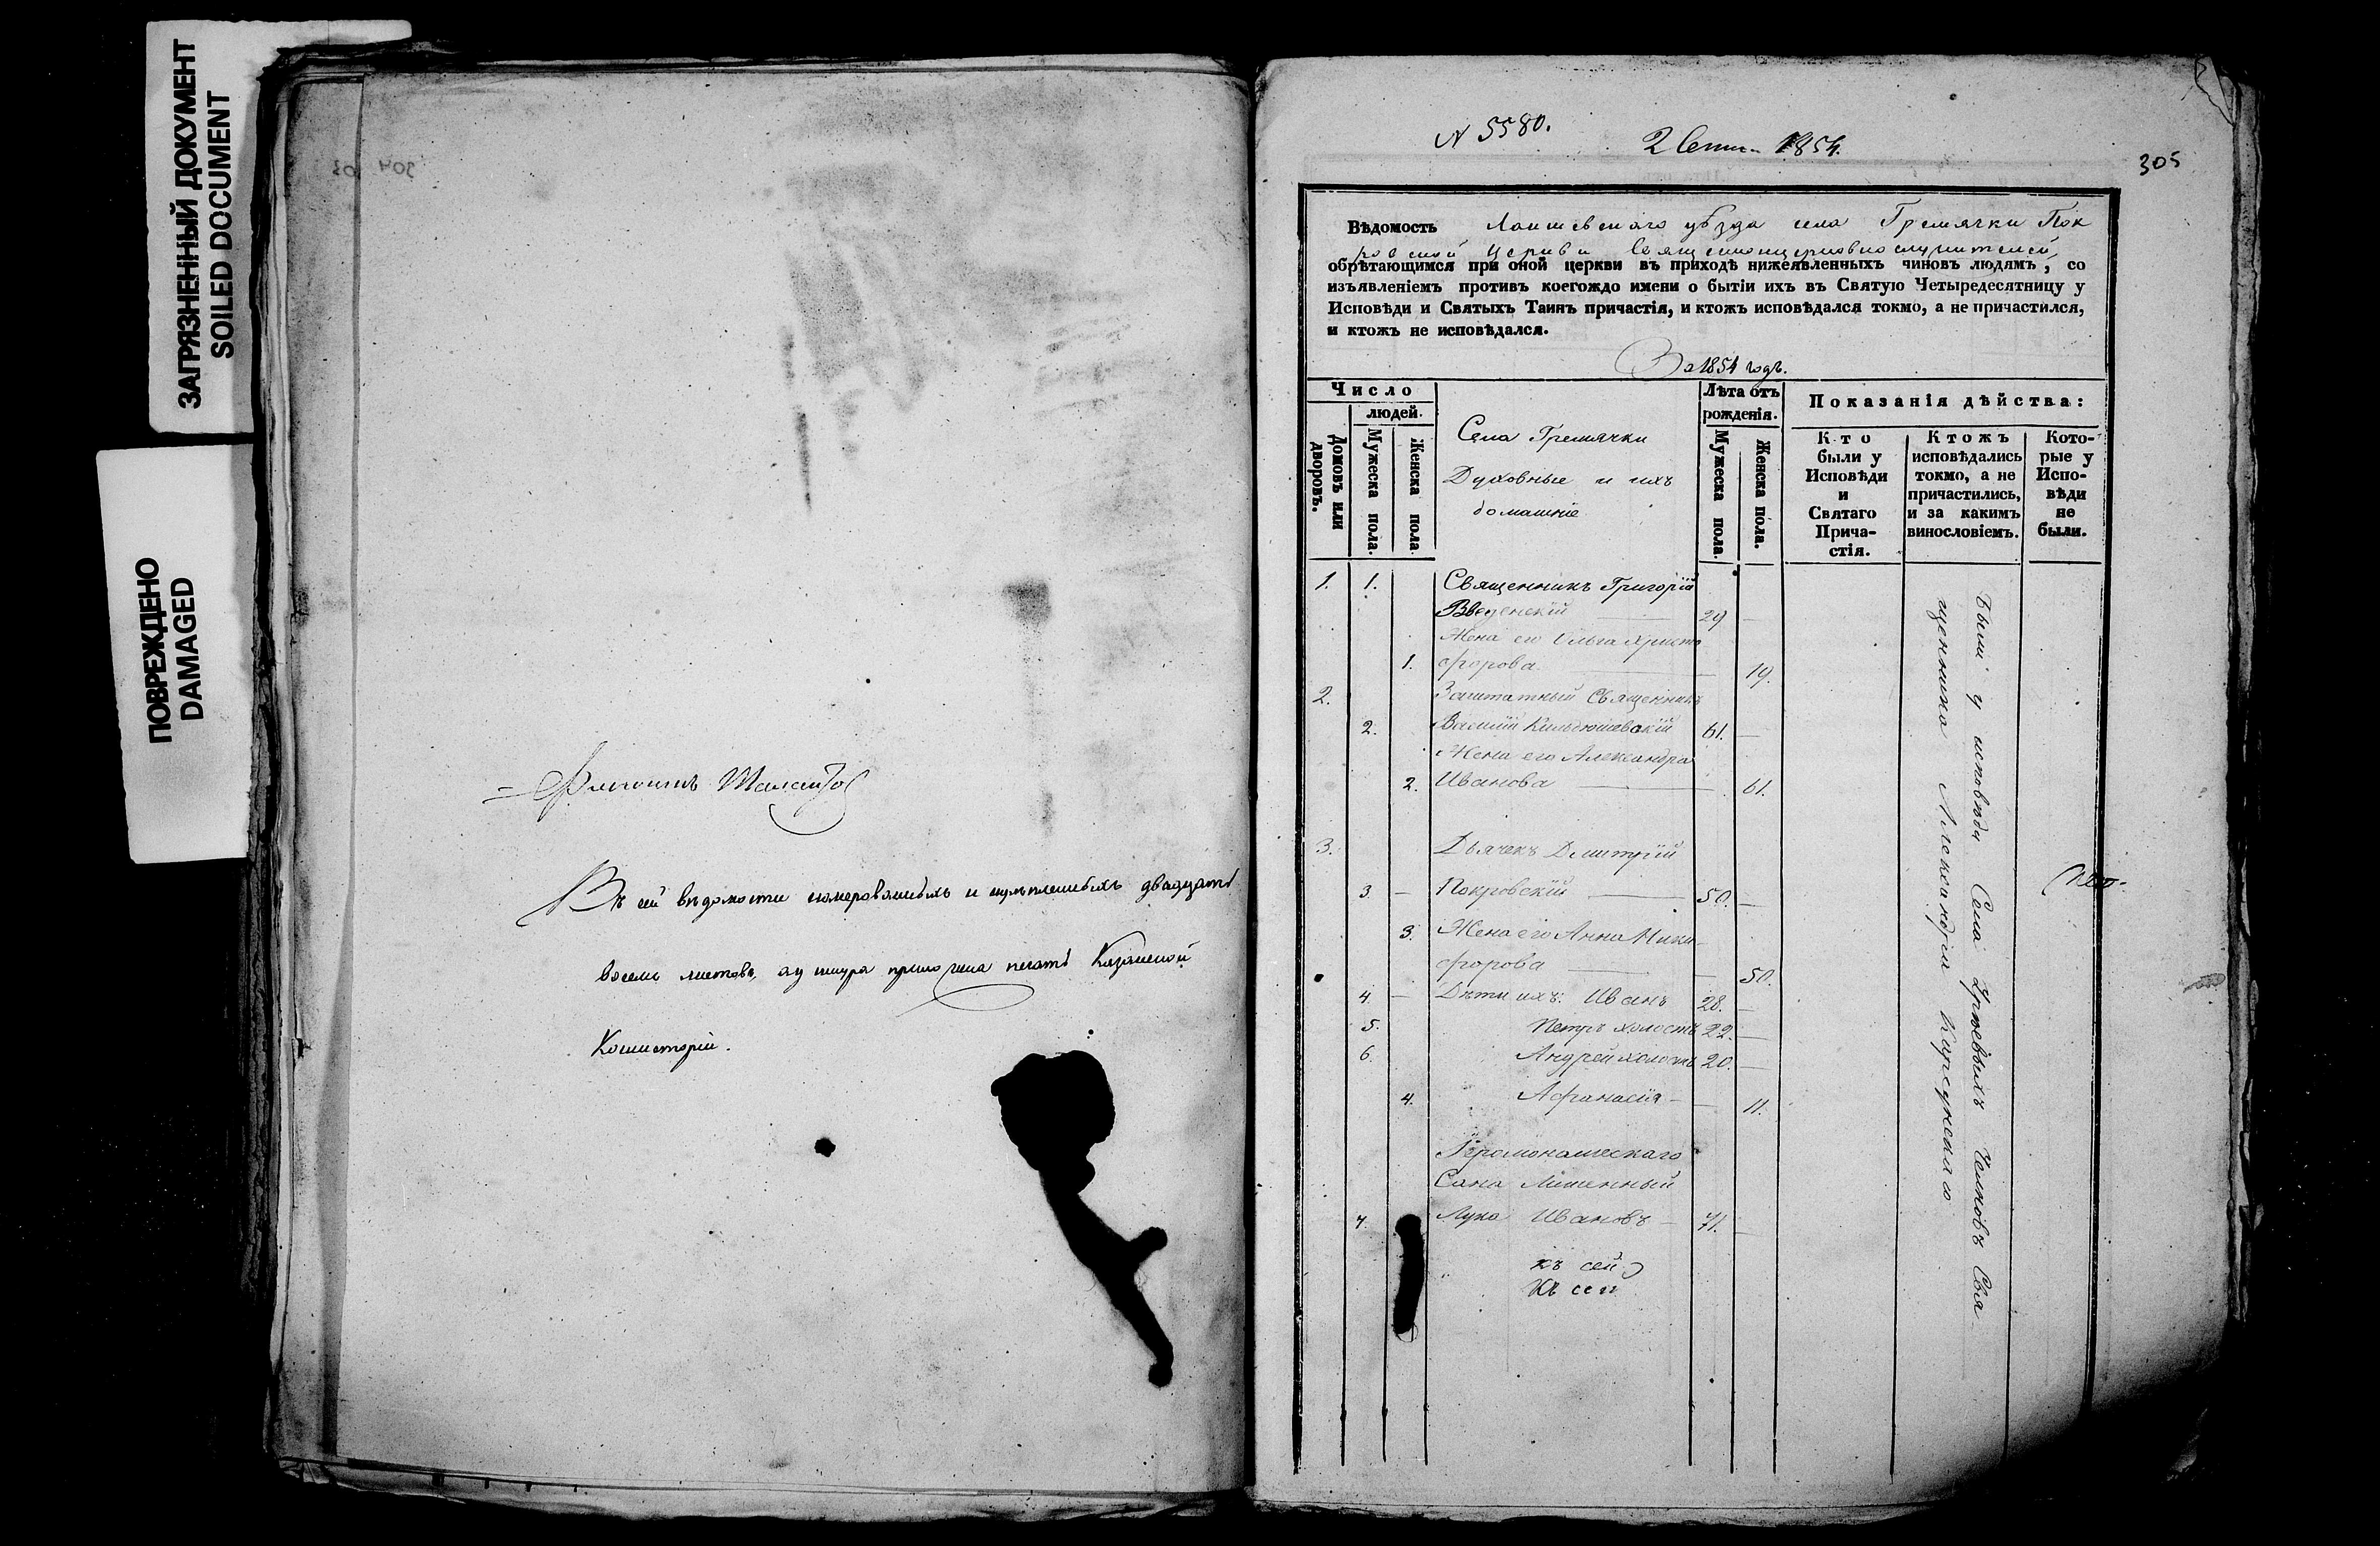 ЗАГРЯЗНЕННЫЙ ДОКУМЕНТ
SOILED DOCUMENT
ПОВРЕЖДЕНО
DAMAGED
Въ сей вѣдомости нумерованныхъ и двадцать
восемь листовъ, приложена печать Казанской
Консисторіи.
№ 5580.
2 Сент. 1854.
305
Вѣдомость Лаишевскаго уѣзда села Гремячки Пок
ровской Церкви Священноцерковнослужителей,
обрѣтающимся при оной церкви въ приходѣ нижеявленныхъ чиновъ людямъ, со
изъявленіемъ противъ коегождо имени о бытіи ихъ въ Святую Четыредесятницу у
Исповѣди и Святыхъ Таинъ причастія, и ктожъ исповѣдался токмо, а не причастился,
и ктожъ не исповѣдался.
За 1854 годъ.
Число
людей.
Домовъ или дворовъ.
Мужеска пола.
Женска пола
Села Гремячки
Духовные и ихъ
домашніе
Лѣта отъ
рожденія.
Мужеска пола.
Женска пола.
Показанія дѣйства:
Кто
были у
Исповѣди
и
Святаго
Прича-
стія.
Ктожъ
исповѣдались
токмо, а не
причастились,
и за какимъ
винословіемъ.
Кото-
рые у
Испо-
вѣди
не
были.
1. 1. Священникъ Григорій
Введенскій 29
Жена его Ольга Христо
1. форова 19.
2. Заштатный Священникъ
2. Василій Кильдюшевскій 61.
Жена его Александра
2. Иванова 61.
3. Дьячекъ Дмитрій
3 Покровскій 50.
3. Жена его Анна Ники-
форова 50.
4. Дѣти ихъ: Иванъ 28.
5. Петръ холостъ 22.
6. Андрей холостъ 20.
4. Афанасія 11.
Іеромонашескаго
Сана Лишенный
7. Лука Ивановъ 71.
къ сей
Къ сей
Были у исповѣди Села Челновъ Свя
щенника Александра